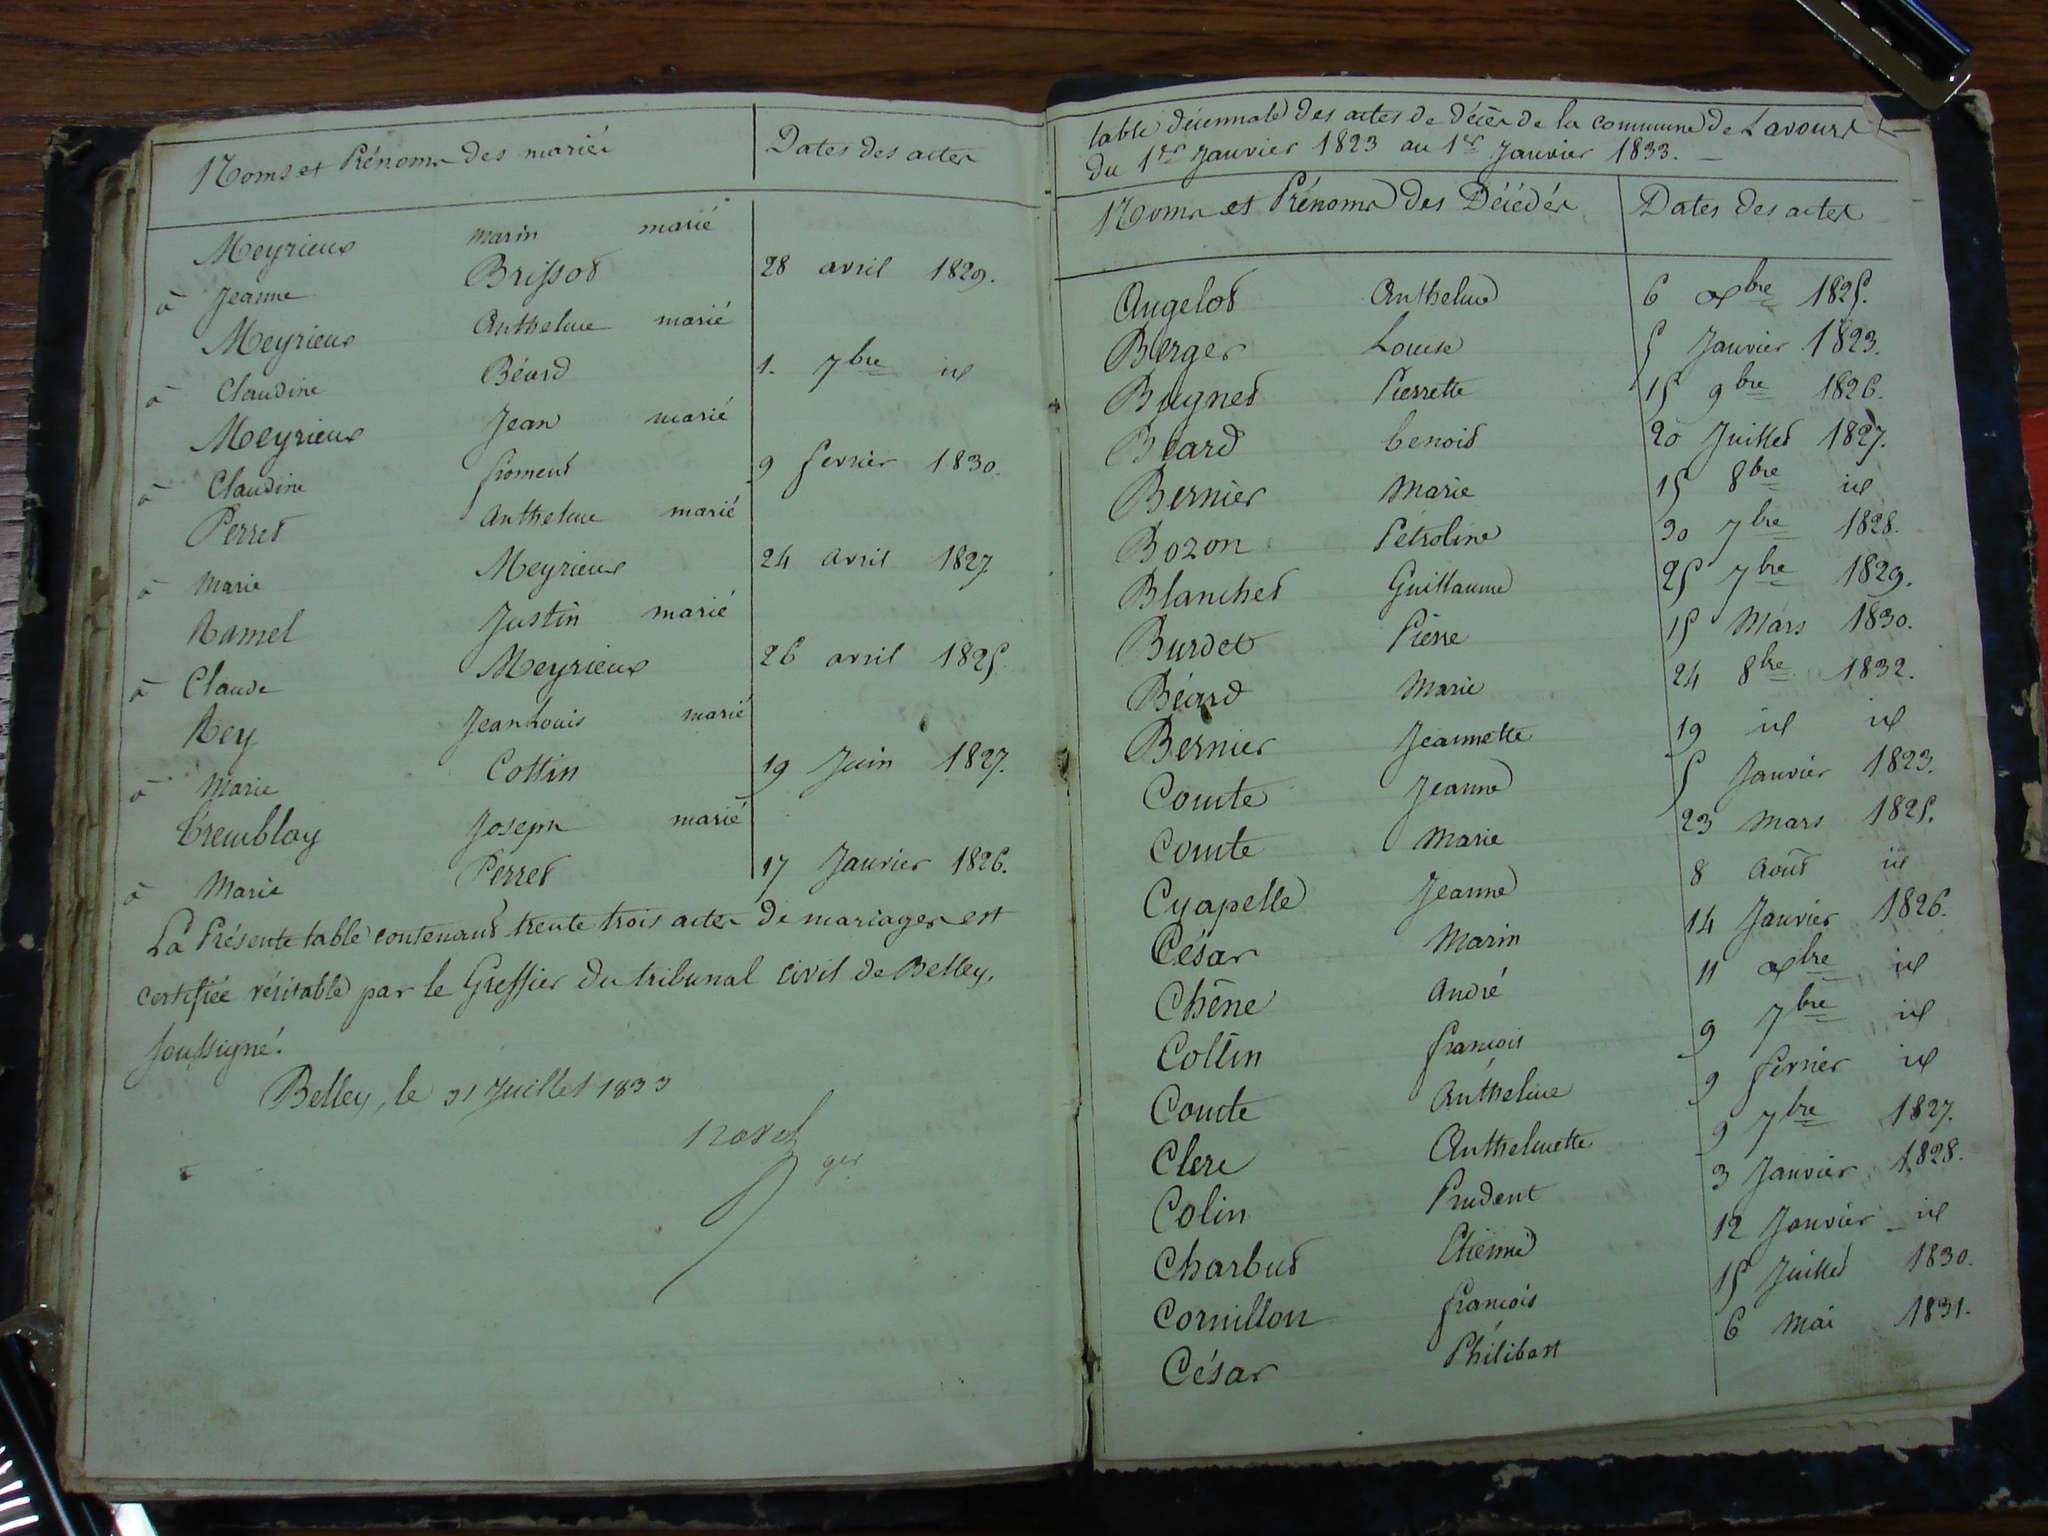 Noms et Prénoms des mariés Dates des actes
Meyrieux marin marié
à Jeanne Brissot 28 avril 1829.
Meyrieux Anthelme marié
à Claudine Béard 1. 7bre id
Meyrieux Jean marié
à Claudine froment 9 fevrier 1830.
Perret Anthelme marié
à Marie Meyrieux 24 avril 1827
Ramel Justin marié
à Claude Meyrieux 26 avril 1825.
Rey Jean Louis marié
à Marie Cottin 19 Juin 1827.
Tremblay Joseph marié
à Marie Perret 17 Janvier 1826.
La Présente table contenant trente trois actes de mariages est
certifiée véritable par le Greffier du tribunal civil de Belley,
soussigné.
Belley, le 31 Juillet 1833
table décennale des actes de décès de la commune de Lavours
du 1er Janvier 1823 au 1er Janvier 1833.
Noms et Prénoms des Décédés Dates des actes
Angelot Anthelme 6 xbre 1825.
Berger Louise 5 Janvier 1823.
Bugnet Pierrette 15 9bre 1826.
Béard benoit 20 Juillet 1827.
Bernier Marie 15 8bre id
Bozon Pétroline 30 7bre 1828.
Blanchet Guillaume 25 7bre 1829.
Burdet Pierre 15 Mars 1830.
Béard Marie 24 8bre 1832.
Bernier Jeannette 19 id id
Comte Jeanne 5 Janvier 1823.
Comte Marie 23 mars 1825.
Cyapelle Jeanne 8 Août id
César Marin 14 Janvier 1826.
Chêne André 11 xbre id
Collin françois 9 7bre id
Comte Anthelme 9 fevrier id
Clerc Anthelmette 9 7bre 1827.
Colin Prudent 3 Janvier 1828.
Charbut Etienne 12 Janvier id
Cornillon françois 15 Juillet 1830.
César Philibert 6 Mai 1831.